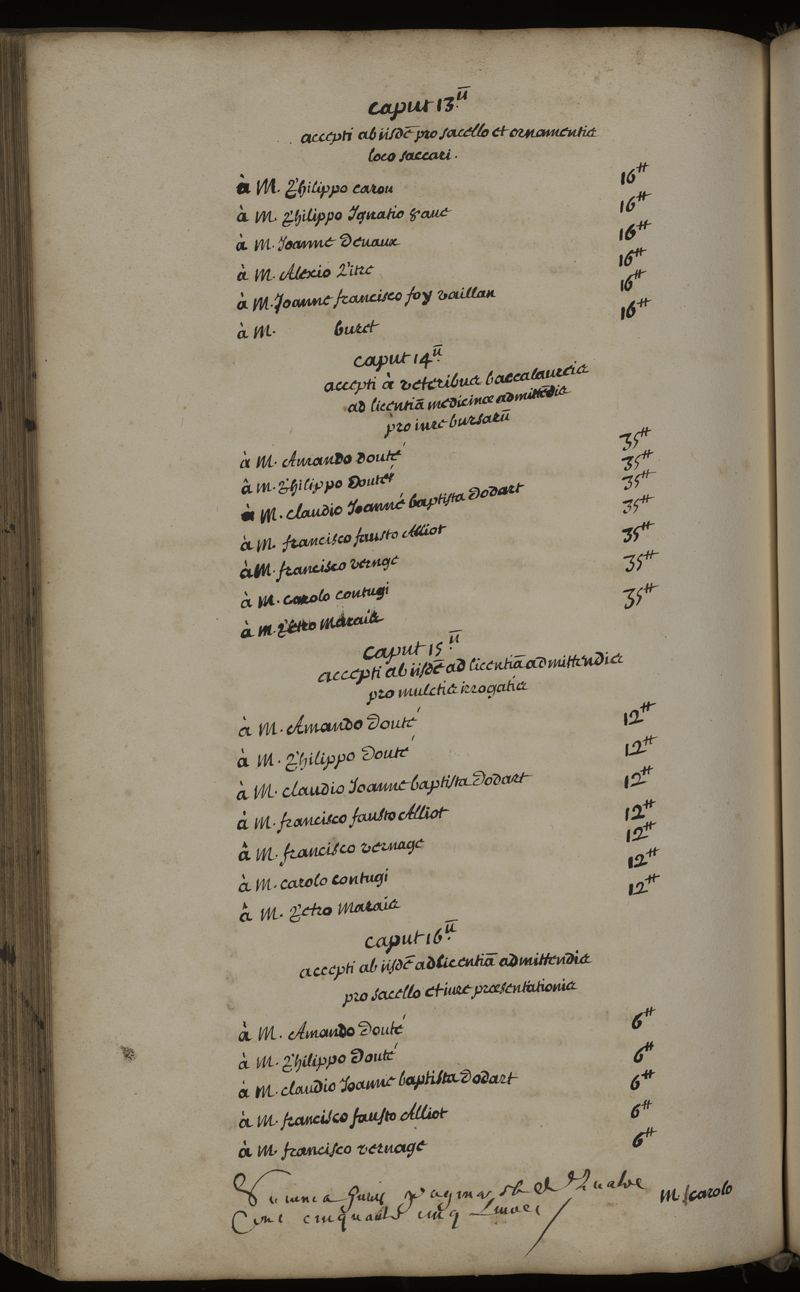 caput 13.ū
accepti ab iisdē pro sacello et ornamentis
loco saccari.
à M. Philippo carou 16ᵗᵗ
à M. Philippo Ignatio gaue 16ᵗᵗ
à M. Joanne Deuaux 16ᵗᵗ
à M. Alexio Litre 16ᵗᵗ
à M. Joanne francisco foy vaillan 16ᵗᵗ
à M. buret 16ᵗᵗ
caput 14.ū
accepti à veteribus baccalaureis
ad licentiā medicinæ admittēdis
pro iure bursarū
à M. Amando Douté 35ᵗᵗ
à M. Philippo Douté 35ᵗᵗ
à M. claudio Joanne baptista Dodart 35ᵗᵗ
à M. francisco fausto Alliot 35ᵗᵗ
à M. francisco vernage 35ᵗᵗ
à M. carolo contugi 35ᵗᵗ
à M. Petro Marais 35ᵗᵗ
caput 15.ū
accepti ab iisdē ad licentiā admittendis
pro mulctis irrogatis
à M. Amando Douté 12ᵗᵗ
à M. Philippo Douté 12ᵗᵗ
à M. claudio Joanne baptista Dodart 12ᵗᵗ
à M. francisco fausto Alliot 12ᵗᵗ
à M. francisco vernage 12ᵗᵗ
à M. carolo contugi 12ᵗᵗ
à M. Petro Marais 12ᵗᵗ
caput 16.ū
accepti ab iisdē ad licentiā admittendis
pro sacello et iure præsentationis
à M. Amando Douté 6ᵗᵗ
à M. Philippo Douté 6ᵗᵗ
à M. claudio Joanne baptista Dodart 6ᵗᵗ
à M. francisco fausto Alliot 6ᵗᵗ
à M. francisco vernage 6ᵗᵗ
Summa huius paginæ est de Quatre
Cent cinquante cinq Liures
M. carolo